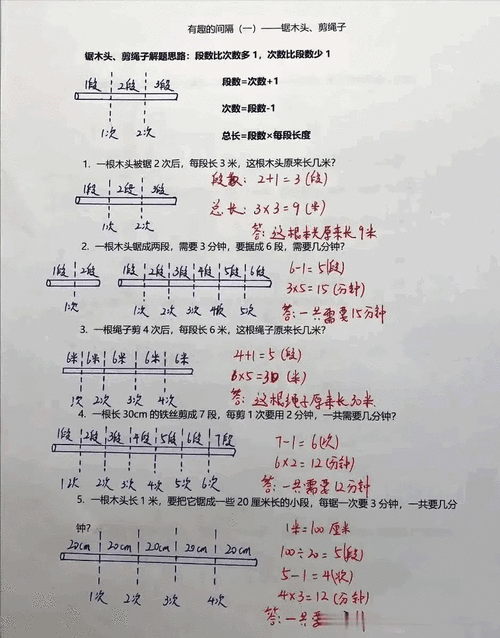 有趣的间隔（一）——锯木头、剪绳子
锯木头、剪绳子解题思路：段数比次数多 1，次数比段数少 1
1段 2段 3段
段数=次数+1
次数=段数-1
1次 2次
总长=段数×每段长度
1. 一根木头被锯 2 次后，每段长 3 米，这根木头原来长几米？
1段 2段 3段
段数：2+1=3(段)
总长：3×3=9(米)
1次 2次
答：这根木头原来长9米
2. 一根木头锯成两段，需要 3 分钟，要据成 6 段，需要几分钟？
1段 2段
1段 2段 3段 4段 5段 6段
6-1=5(段)
3×5=15(分钟)
1次
1次 2次 3次 4次 5次
答：一共需要15分钟
3. 一根绳子剪 4 次后，每段长 6 米，这根绳子原来长几米？
6米 6米 6米 6米 6米
4+1=5(段)
6×5=30(米)
1次 2次 3次 4次
答：这根绳子原来长30米
4. 一根长 30cm 的铁丝剪成 7 段，每剪 1 次要用 2 分钟，一共需要几分钟？
1段 2段 3段 4段 5段 6段 7段
7-1=6(次)
6×2=12(分钟)
1次 2次 3次 4次 5次 6次
答：一共需要12分钟
5. 一根木头长 1 米，要把它锯成一些 20 厘米长的小段，每锯一次要 3 分钟，一共要几分
钟？
20cm 20cm 20cm 20cm 20cm
1米=100厘米
100÷20=5(段)
5-1=4(次)
1次 2次 3次 4次
4×3=12(分钟)
答：一共要